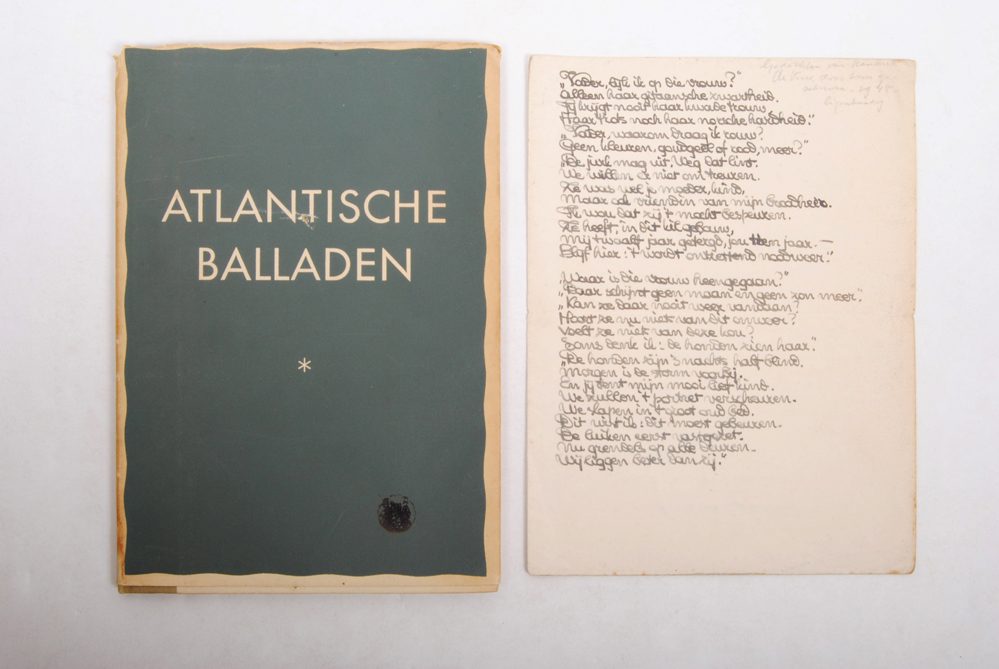 ATLANTISCHE
BALLADEN
*
„Vader, lijk ik op die vrouw?"
Alleen haar zwartheid.
Jij krijgt nooit haar kwade trouw,
Haar trots noch haar norsche hardheid."
„Vader, waarom draag ik rouw?
Geen kleuren, goudgeel of rood, meer?"
„De jurk mag uit. Weg dat lint.
We willen er niet om treuren.
Ze was wel je moeder, kind,
Maar ook vriendin van mijn broodheer.
Ik wou dat zij 't mocht bespeuren.
Ze heeft, in dit kil gebouw,
Mij twaalf jaar getergd, jou tien jaar. —
Blijf hier: 't wordt ontzettend noodweer."
„Waar is die vrouw heengegaan?"
„Daar schijnt geen maan en geen zon meer."
„Kan ze daar nooit weer vandaan?
Hoort ze nu niet van dit onweer?
Voelt ze niet van deze kou?
Soms denk ik: de honden zien haar."
„De honden zijn 's nachts half blind.
Morgen is de storm voorbij.
En jij bent mijn mooi lief kind.
We zullen 't portret verscheuren.
We slapen in 't groot oud bed.
Dit wist ik: dit moest gebeuren.
De luiken eerst vastgezet.
Nu grendels op alle deuren.
Wij liggen beter dan zij."